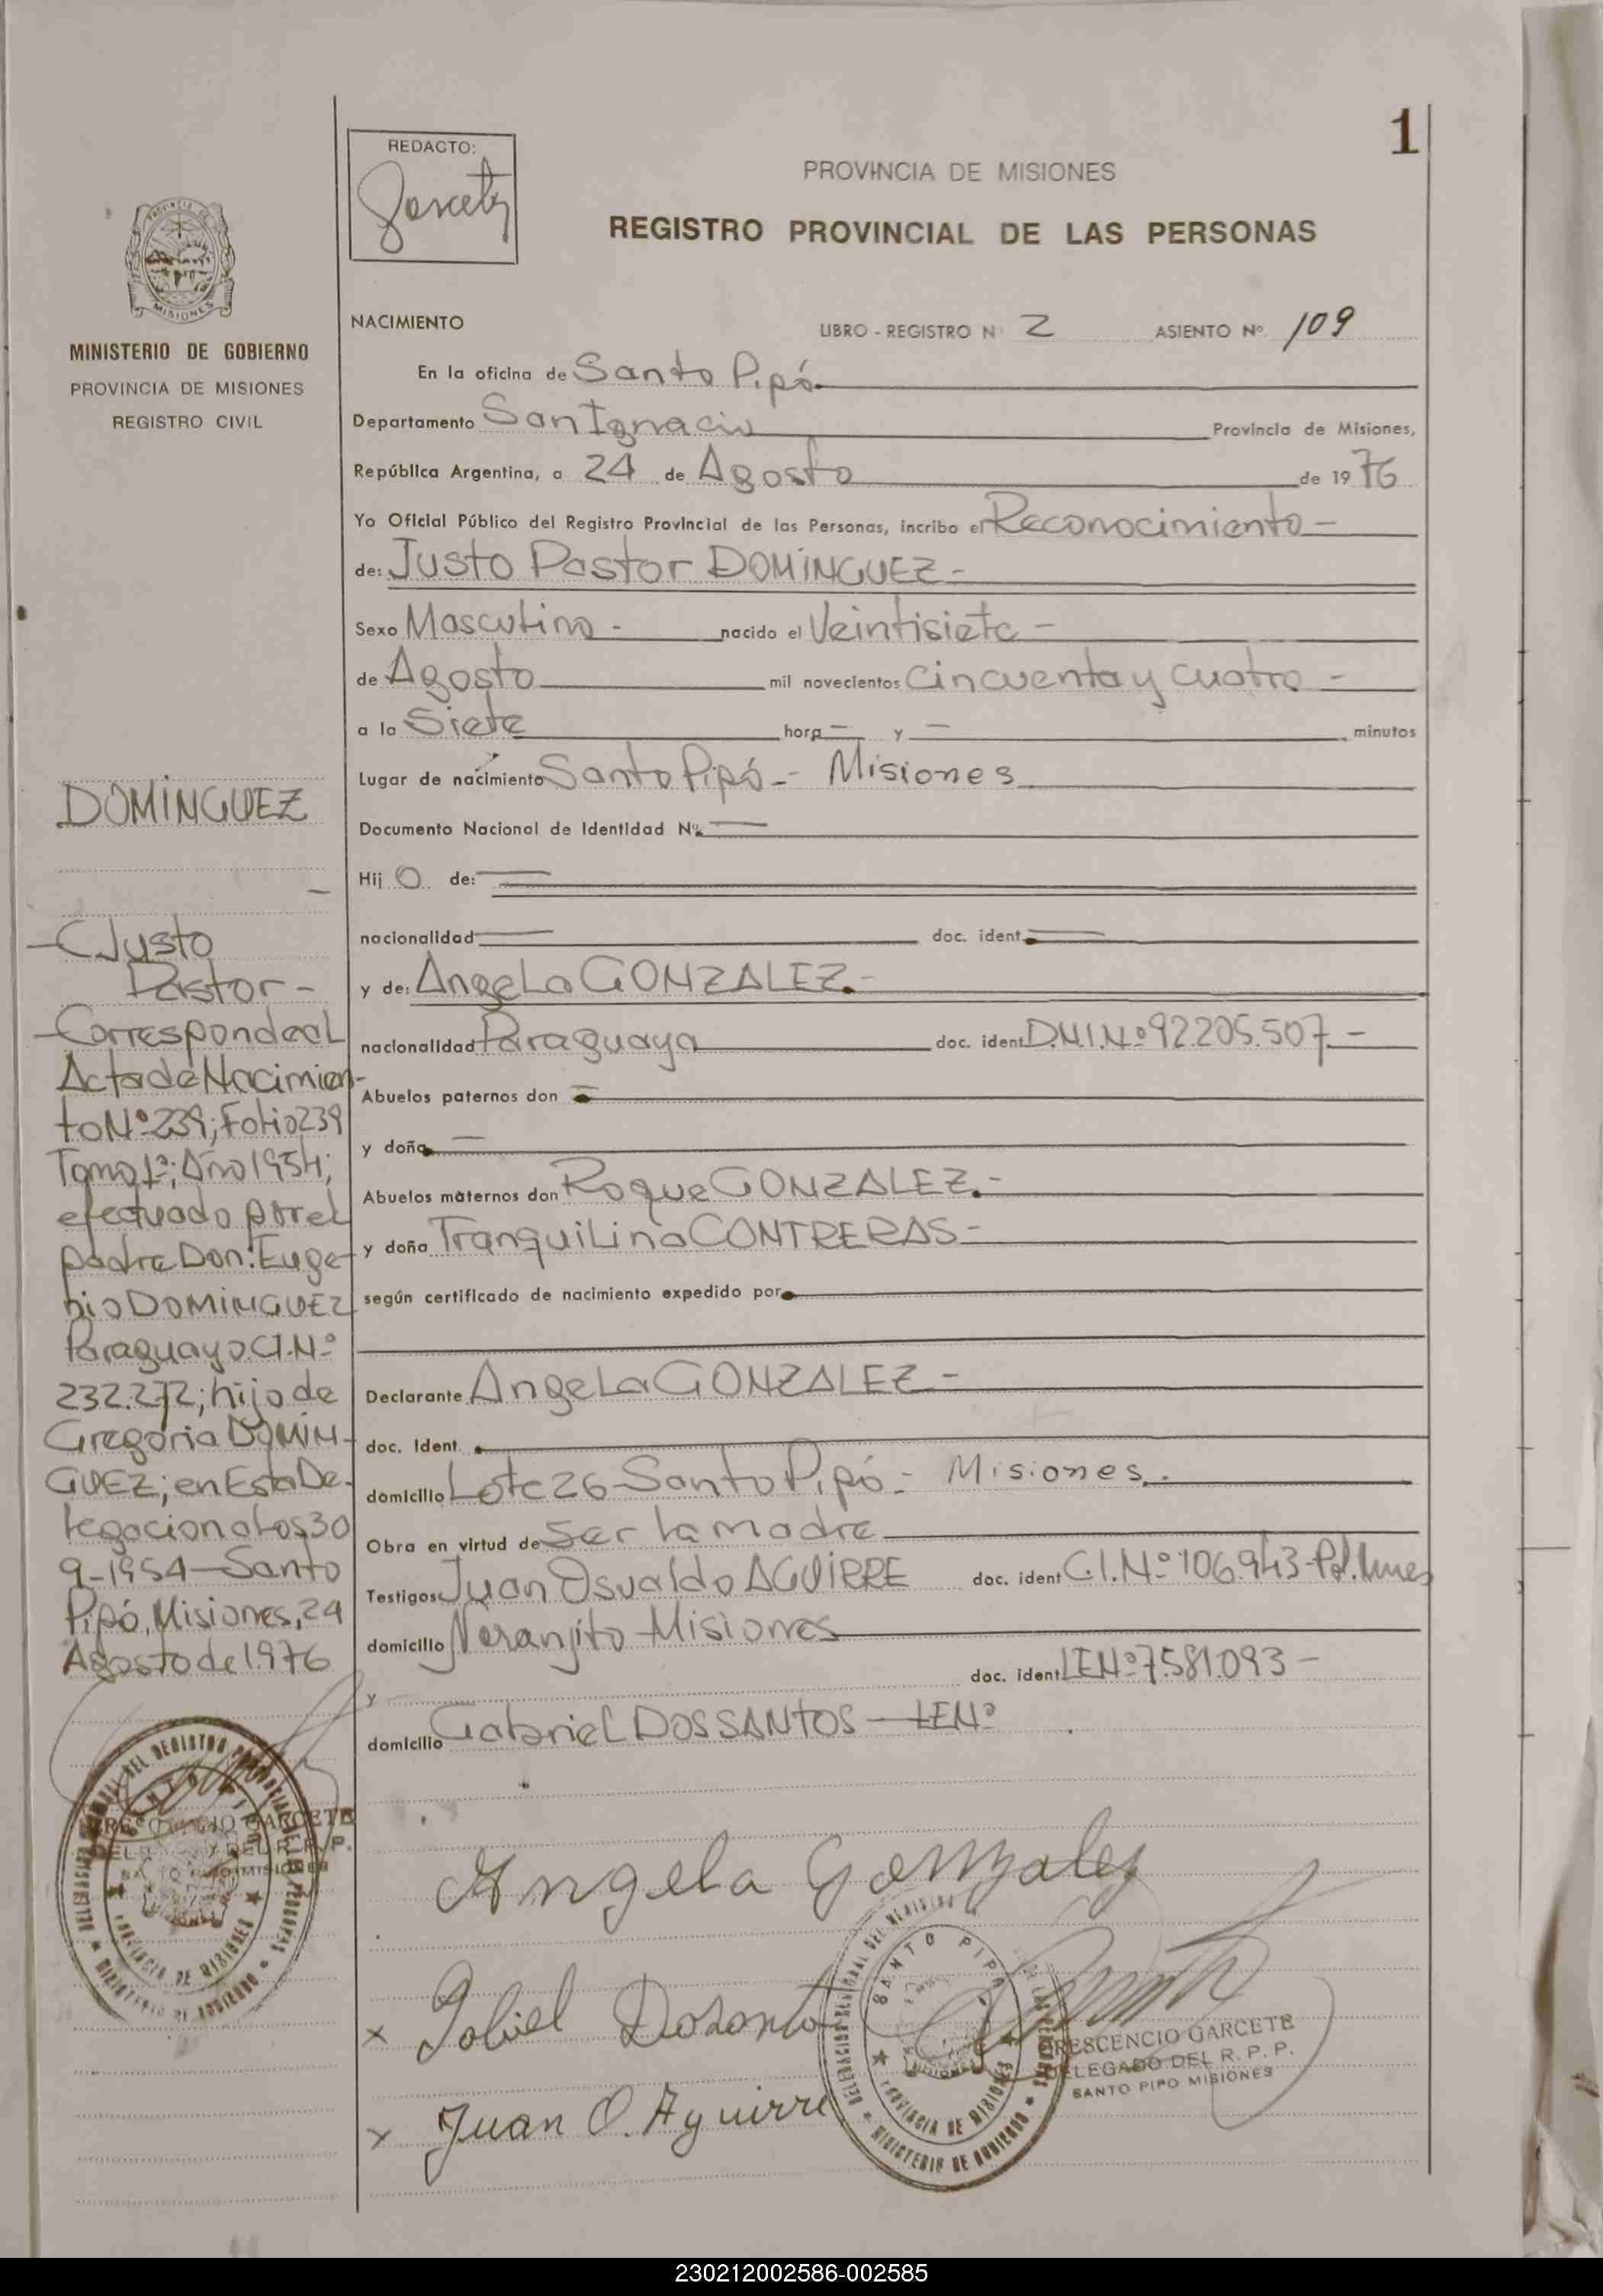 1
REDACTO:
PROVINCIA DE MISIONES
REGISTRO PROVINCIAL DE LAS PERSONAS
MISIONES
MINISTERIO DE GOBIERNO
PROVINCIA DE MISIONES
REGISTRO CIVIL
NACIMIENTO LIBRO - REGISTRO N 2 ASIENTO Nº. 109
En la oficina de Santo Pipó
Departamento San Ignacio Provincia de Misiones,
República Argentina, a 24 de Agosto de 19 76
Yo Oficial Público del Registro Provincial de las Personas, incribo el Reconocimiento -
de: Justo Pastor DOMINGUEZ -
Sexo Masculino - nacido el Veintisiete -
de Agosto mil novecientos Cincuenta y cuatro -
a la Siete hora — y — minutos
Lugar de nacimiento Santo Pipó - Misiones
Documento Nacional de Identidad Nº —
Hij o de: —
nacionalidad — doc. ident. —
y de: Angela GONZALEZ. -
nacionalidad Paraguaya doc. ident D.N.I.Nº 92.205.507 -
Abuelos paternos don —
y doña —
Abuelos maternos don Roque GONZALEZ. -
y doña Tranquilina CONTRERAS -
según certificado de nacimiento expedido por
Declarante Angela GONZALEZ -
doc. Ident.
domicilio Lote 26 - Santo Pipó - Misiones.
Obra en virtud de Ser la madre
Testigos Juan Osvaldo AGUIRRE doc. ident C.I.Nº 106.943 - Pol.
domicilio Naranjito - Misiones
y doc. ident LENº 7.581.093 -
domicilio Gabriel DOSSANTOS - LENº
DOMINGUEZ
-
- Justo
Pastor -
- Corresponde al
Acta de Nacimien-
to Nº 239; Folio 239
Tomo 1º; Año 1954;
efectuado por el
padre Don: Euge-
nio DOMINGUEZ
Paraguayo C.I.Nº
232.272; hijo de
Gregoria DOMIN-
GUEZ; en Esta De-
legacion a los 30
9-1954 - Santo
Pipó, Misiones, 24
Agosto de 1976
CRESCENCIO GARCETE
DELEGADO DEL R. P. P.
SANTO PIPO MISIONES
PROVINCIA DE MISIONES
MINISTERIO DE GOBIERNO
Angela Gonzalez
x
x Juan O. Aguirre
SANTO PIPO
PROVINCIA DE MISIONES
MINISTERIO DE GOBIERNO
CRESCENCIO GARCETE
DELEGADO DEL R. P. P.
SANTO PIPO MISIONES
230212002586-002585